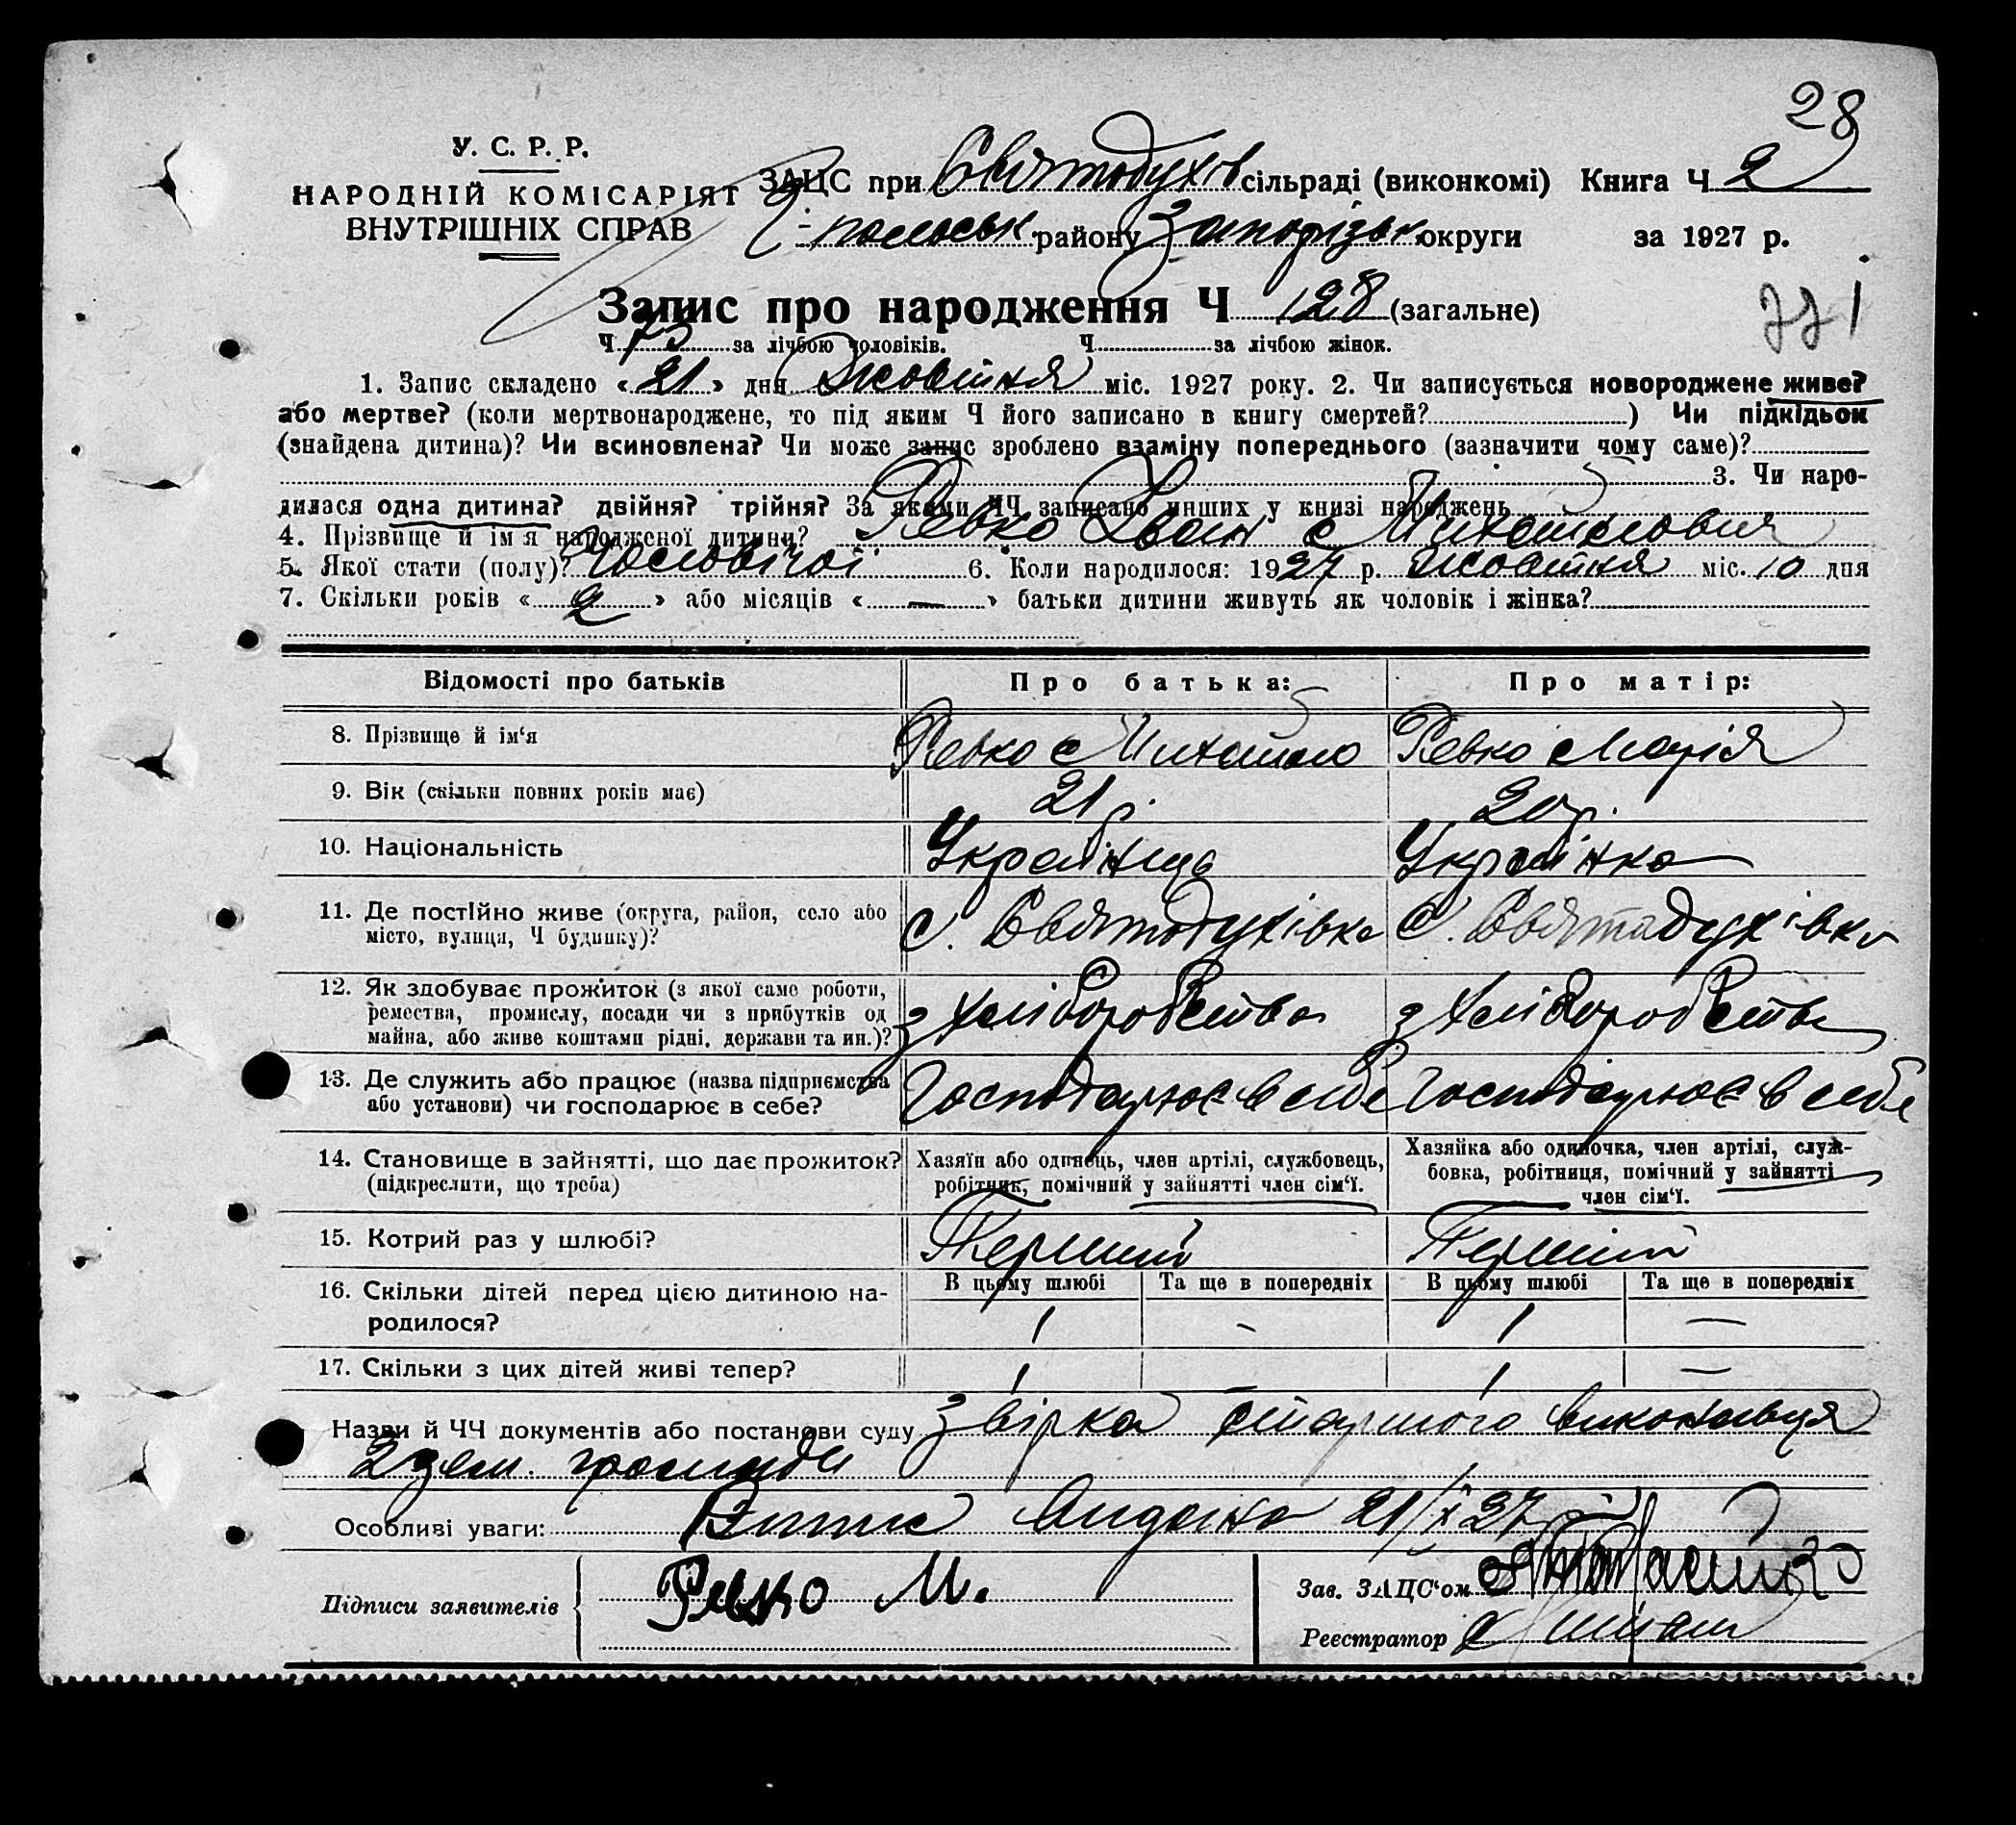 28
У. С. Р. Р.
НАРОДНІЙ КОМІСАРІЯТ
ВНУТРІШНІХ СПРАВ
ЗАЦС при Святодухів сільраді (виконкомі) Книга Ч 2
району Запорізьк округи за 1927 р.
Запис про народження Ч 128 (загальне)
Ч 75 за лічбою чоловіків. Ч за лічбою жінок.
1. Запис складено « 21 » дня Жовтня міс. 1927 року. 2. Чи записується новороджене живе?
або мертве? (коли мертвонароджене, то під яким Ч його записано в книгу смертей? ) Чи підкідьок
(знайдена дитина)? Чи всиновлена? Чи може запис зроблено взаміну попереднього (зазначити чому саме)?
3. Чи наро-
дилася одна дитина? двійня? трійня? За якими ЧЧ записано инших у книзі народжень
4. Прізвище й ім'я народженої дитини? Ревко Іван Михайлович
5. Якої стати (полу)? Чоловічої 6. Коли народилося: 1927 р. Жовтня міс. 10 дня
7. Скільки років « 2 » або місяців « — » батьки дитини живуть як чоловік і жінка?
Відомості про батьків Про батька: Про матір:
8. Прізвище й ім'я Ревко Михайло Ревко Марія
9. Вік (скільки повних років має) 21 р. 20 р.
10. Національність Українець Українка
11. Де постійно живе (округа, район, село або
місто, вулиця, Ч будинку)? с. Святодухівка с. Святодухівка
12. Як здобуває прожиток (з якої саме роботи,
ремества, промислу, посади чи з прибутків од
майна, або живе коштами рідні, держави та ин.)? з хліборобства з хліборобства
13. Де служить або працює (назва підприємства
або установи) чи господарює в себе? Господарює в себе Господарює в себе
14. Становище в зайнятті, що дає прожиток?
(підкреслити, що треба)
Хазяїн або одинець, член артілі, службовець,
робітник, помічний у зайнятті член сім'ї.
Хазяйка або одиночка, член артілі, служ-
бовка, робітниця, помічний у зайнятті
член сім'ї.
15. Котрий раз у шлюбі? Перший Перший
В цьому шлюбі Та ще в попередніх В цьому шлюбі Та ще в попередніх
16. Скільки дітей перед цією дитиною на-
родилося? 1 - 1 —
17. Скільки з цих дітей живі тепер? 1 — 1 —
Назви й ЧЧ документів або постанови суду Звірка старшого виконавця
2 зем. громади
Особливі уваги: Витяг видано 21/X 27 р.
Підписи заявителів Ревко М.
Зав. ЗАЦС'ом
Реестратор